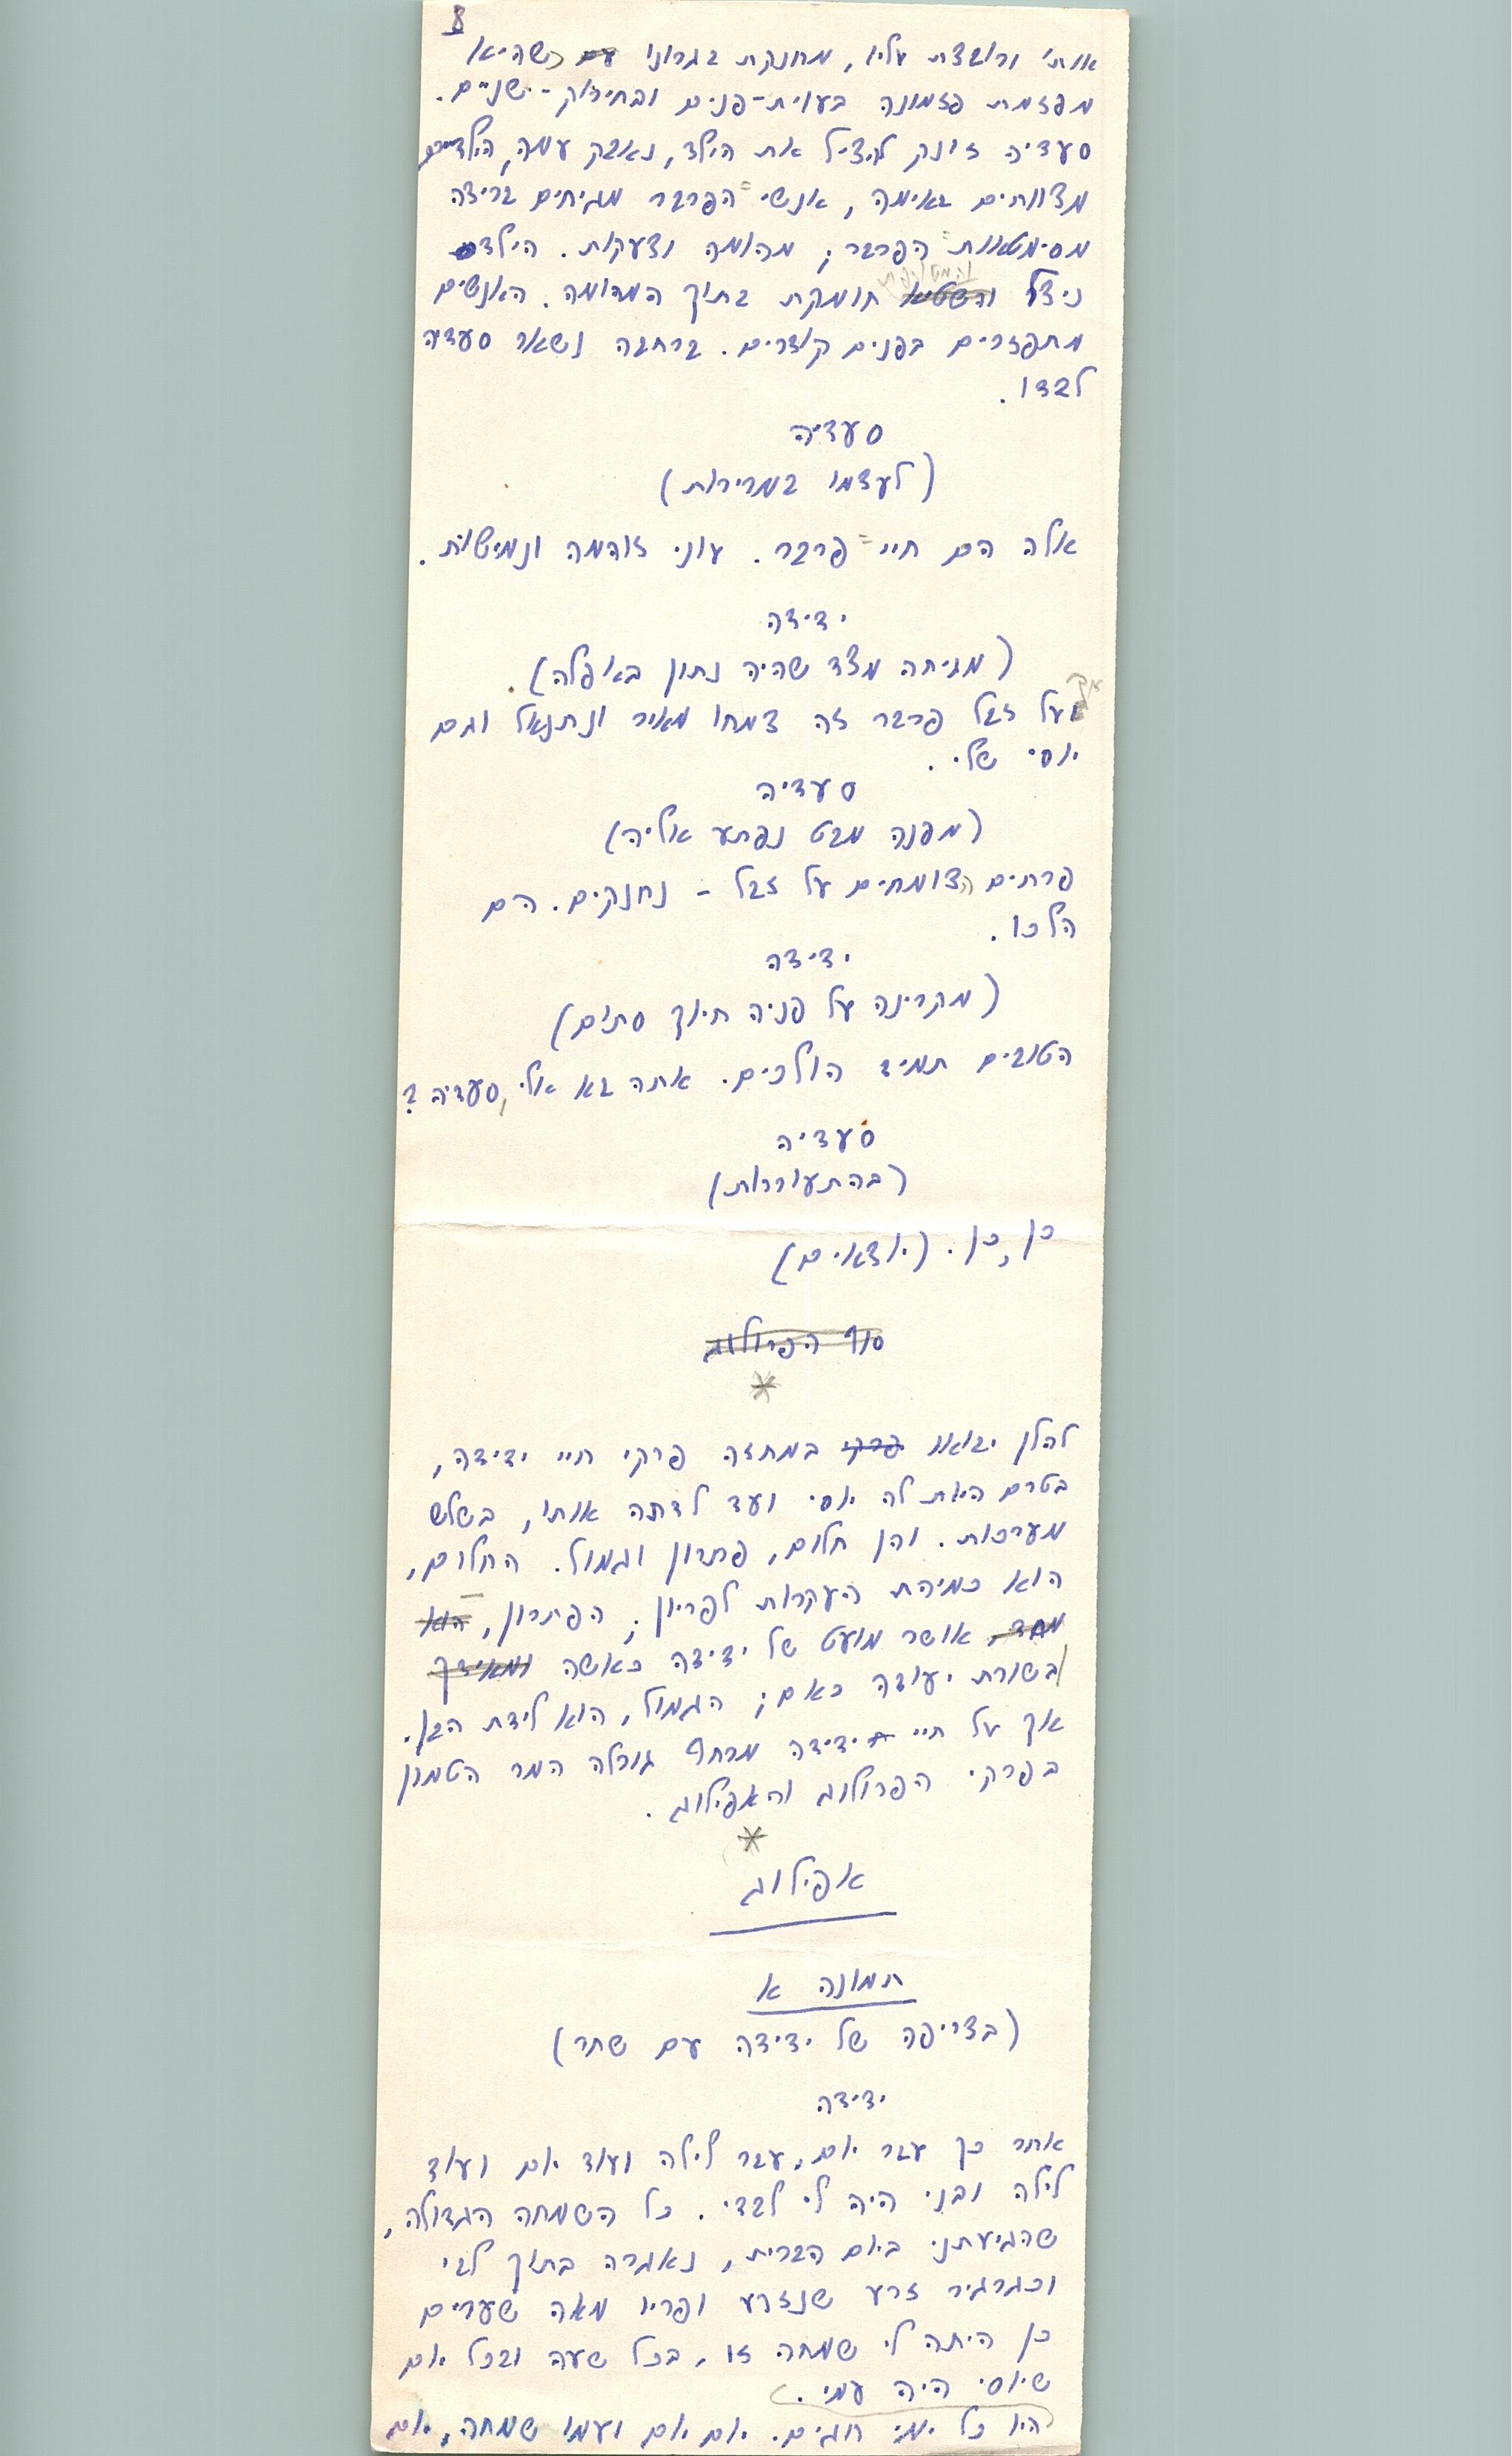 8
אותו ורובצת עליו, מחנקת בגרונו כשהיא
מפזמת פזמונה בעוית-פנים ובחירוק-שניים.
סעדיה זונק להציל את הילד, נאבק עמה, הילדים
מצווחים באימה, אנשי הפרבר מגיחים בריצה
מסימטאות הפרבר; מהומה וצעקות. הילד
ניצל והמטורפת חומקת בתוך המהומה. האנשים
מתפזרים בפנים קודרים. ברחבה נשאר סעדיה
לבדו.
סעדיה
(לעצמו במרירות)
אלה הם חיי פרבר. עוני זוהמה ונמישות.
ידידה
(מגיחה מצד שהיה נתון באפלה).
ועל זבל פרבר זה צמחו מאיר ונתנאל וגם
יוסי שלי.
סעדיה
(מפנה מבט נפתע אליה)
פרחים הצומחים על זבל - נחנקים. הם
הלכו.
ידידה
(מקרינה על פניה חיוך סתום)
הטובים תמיד הולכים. אתה בא אלי, סעדיה?
סעדיה
(בהתעוררות)
כן, כן. (יוצאים)
סוף הפרולוג
*
להלן יבואו פרקי במחזה פרקי חיי ידידה,
בטרם היות לה יוסי ועד לדתה אותו, בשלש
מערכות. והן חלום, פתרון וגמול. החלום,
הוא כמיהת העקרות לפריון; הפיתרון, הוא
מחד, אושר מועט של ידידה כאשה ומאידך
ובשורת יעודה כאם; הגמול, הוא לידת הבן.
אך על חיי ידידה מרחף גורלה המר הטמון
בפרקי הפרולוג והאפילוג.
*
אפילוג
תמונה א
(בצריפה של ידידה עם שחר)
ידידה
אחר כך עבר יום, עבר לילה ועוד יום ועוד
לילה ובני היה לי לבדי. כל השמחה הגדולה,
שהגיעתני ביום הברית, נאגרה בתוך לבי
וכגרגיר זרע שנזרע ופריו מאה שערים
כן היתה לי שמחה זו, בכל שעה ובכל יום
שיוסי היה עמי.
היו כל ימי חוגים. יום יום ועמו שמחה, יום